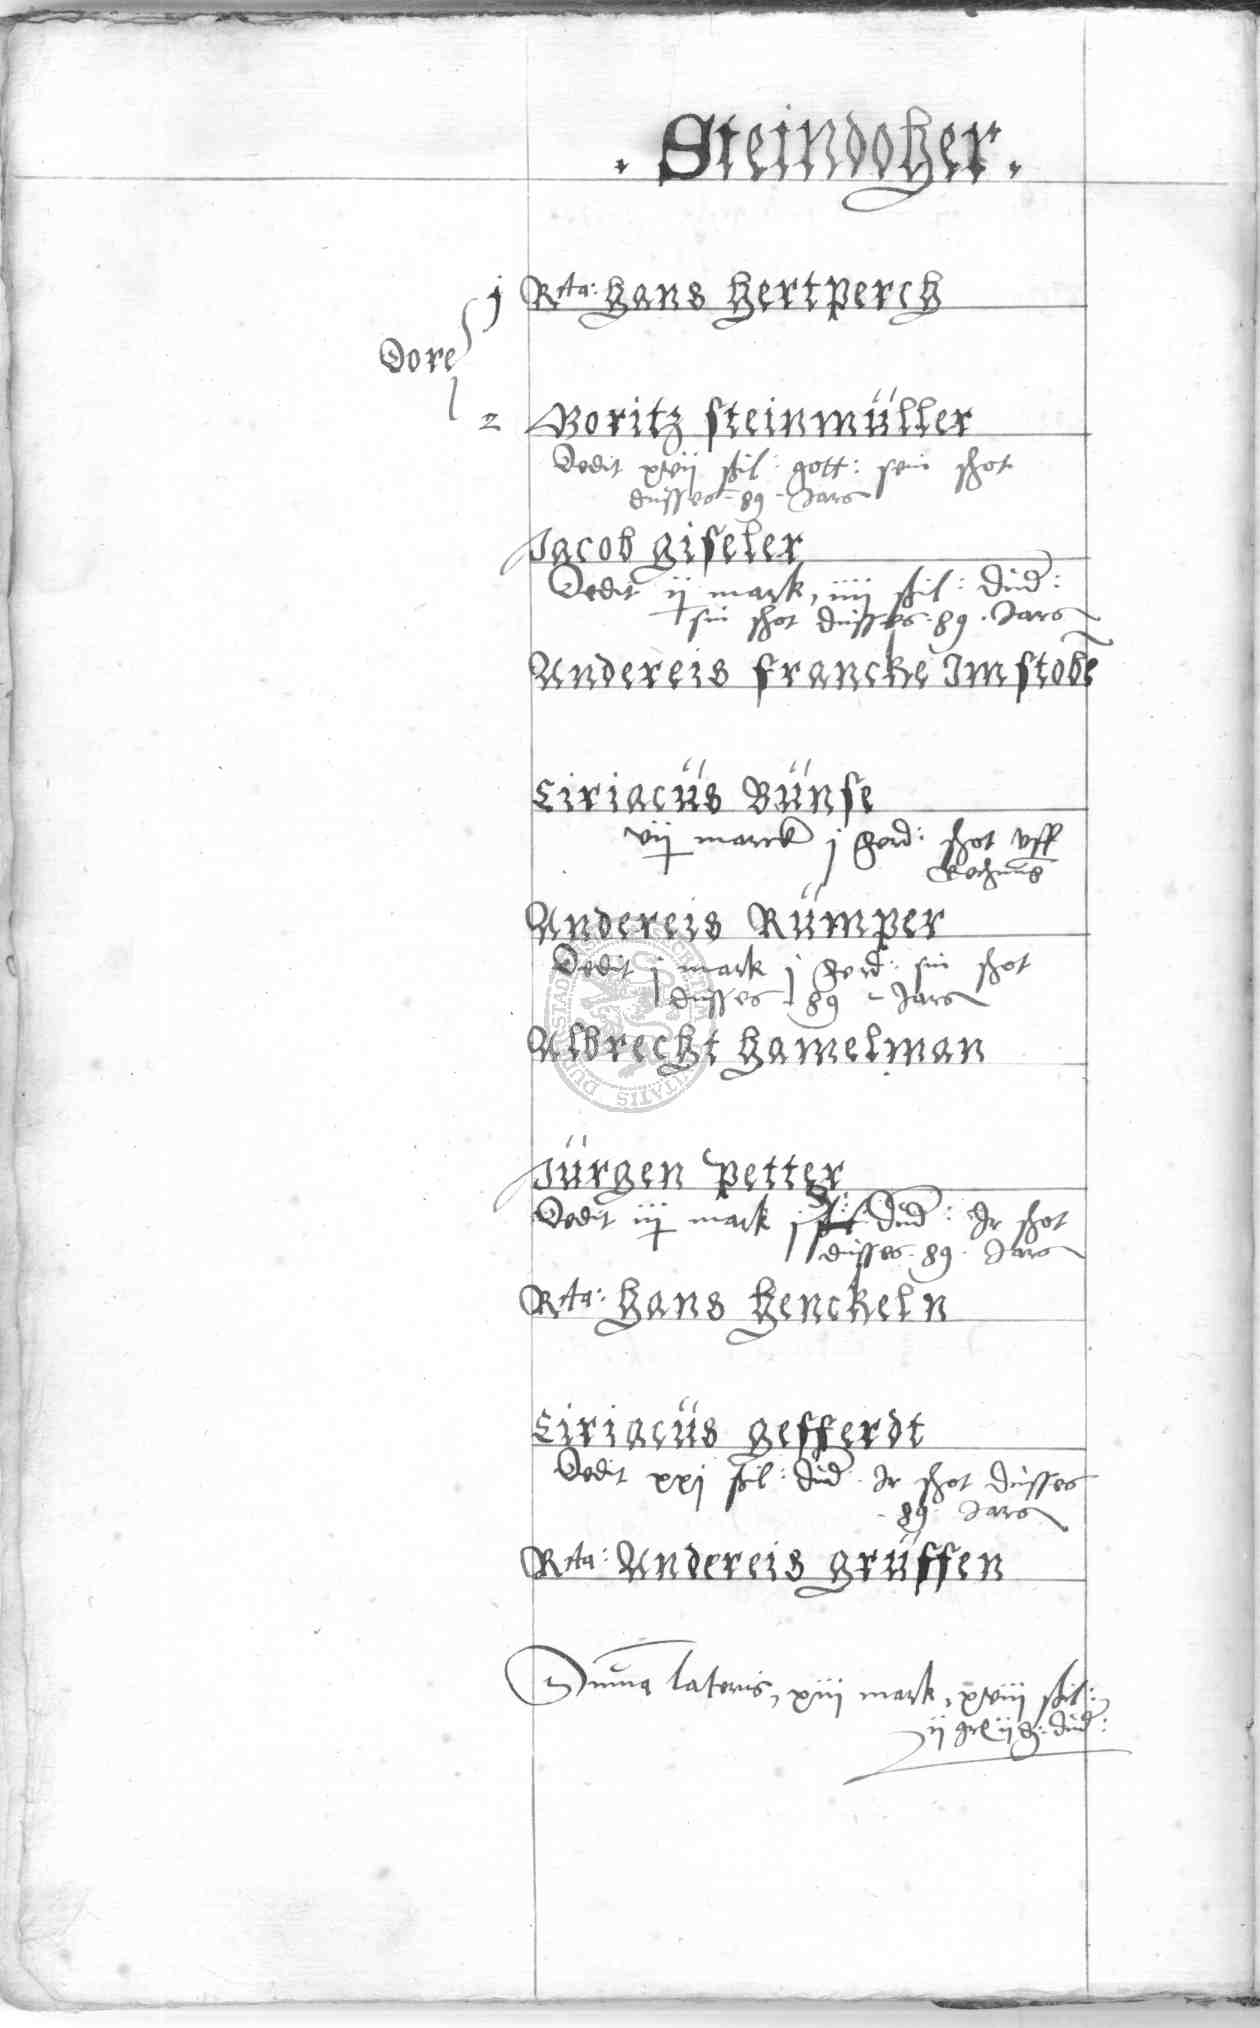 . Steindoher .
j Rta: Hans Hertperch
Dore
2 Boritz Steinmüller
Dedit xvii shil: gott: sein shot
dusses 89 Jars
Jacob giseler
Dedit ij mark, iiii shil: dud:
sin shot dusses 89. Jars
Andereis francke Im stobē
Ciriacüs Bünse
vij marck j ferd: shot vff
Rechnung
Andereis Rümper
Dedit j mark j ferd: sin shot
dusses 89 Jars
Albrecht Hamelman
Jürgen petter
Dedit iij mark j dud: Jr shot
dusses. 89. Jars
Rta: Hans Henckeln
Ciriacüs gefferdt
Dedit xxj shil: dud: Jr shot dusses
89. Jars
Rta: Andereis grüffen
Suma lateris, xiij mark, xviij shil:
ij dud: